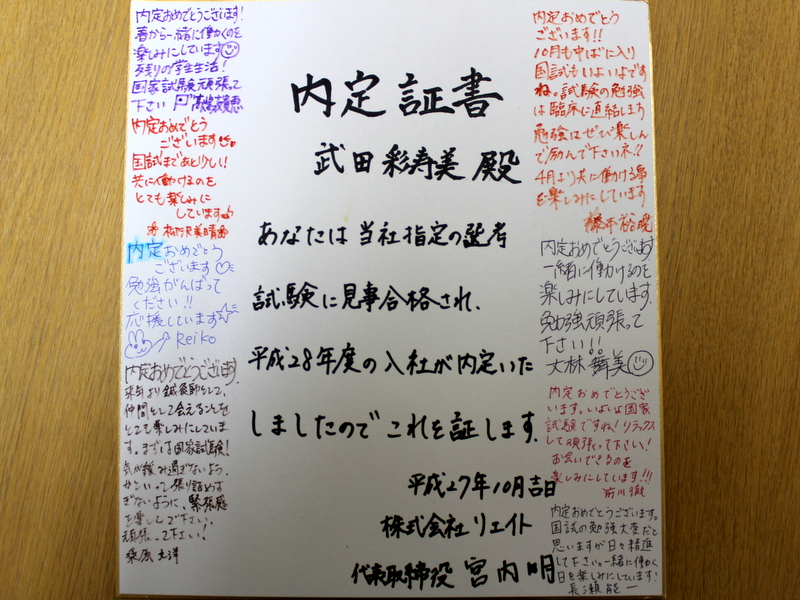 内定証書
武田彩寿美 殿
あなたは当社指定の選考
試験に見事合格され、
平成28年度の入社が内定いた
しましたのでこれを証します。
平成27年10月吉日
株式会社リエイト
代表取締役 宮内 明
内定おめでとうございます!
春から一緒に働くのを
楽しみにしています
残りの学生生活!
国家試験頑張って
下さい
内定おめでとう
ございます
国試まであと少し!!
共に働けるのを
とても楽しみに
しています
内定おめでとう
ございます♡
勉強がんばって
ください!!
応援しています☆
Reiko
内定おめでとうございます。
来年より鍼灸師として、
仲間として会えることを
とても楽しみにしていま
す。まずは国家試験!
気が緩み過ぎないよう、
かといって張り詰めす
ぎないように、緊張感
を楽しんで下さい。
頑張って下さい!
内定おめでとう
ございます!!
10月も中ばに入り
国試もいよいよです
ね。試験の勉強
は臨床に直結します
勉強はぜひ楽しん
で励んで下さいネ!!
4月より共に働ける事
を楽しみにしています
内定おめでとうございます。
一緒に働けるのを
楽しみにしています。
勉強頑張って
下さい!!
大林 舞美
内定おめでとうござい
ます。いよいよ国家
試験ですね!リラックス
して頑張って下さい!
お会いできるのを
楽しみにしています!!!
前川 徹
内定おめでとうございます。
国試の勉強大変だと
思いますが日々精進
して下さい。一緒に働く
日を楽しみにしています!
長瀬 龍一